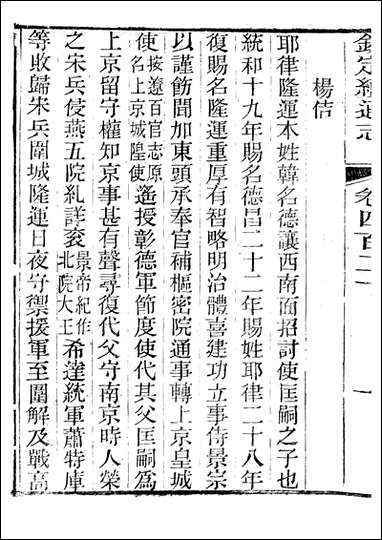 欽定續通志 卷四百二十一 一
楊佶
耶律隆運本姓韓名德讓西南面招討使匡嗣之子也
統和十九年賜名德昌二十二年賜姓耶律二十八年
復賜名隆運重厚有智略明治體喜建功立事侍景宗
以謹飭聞加東頭承奉官補樞密院通事轉上京皇城
使按遼百官志原名上京城隍使遙授彰德軍節度使代其父匡嗣爲
上京留守權知京事甚有聲尋復代父守南京時人榮
之宋兵侵燕五院糺詳袞景帝紀作北院大王希達統軍蕭特庫
等敗歸宋兵圍城隆運日夜守禦援軍至圍解及戰高